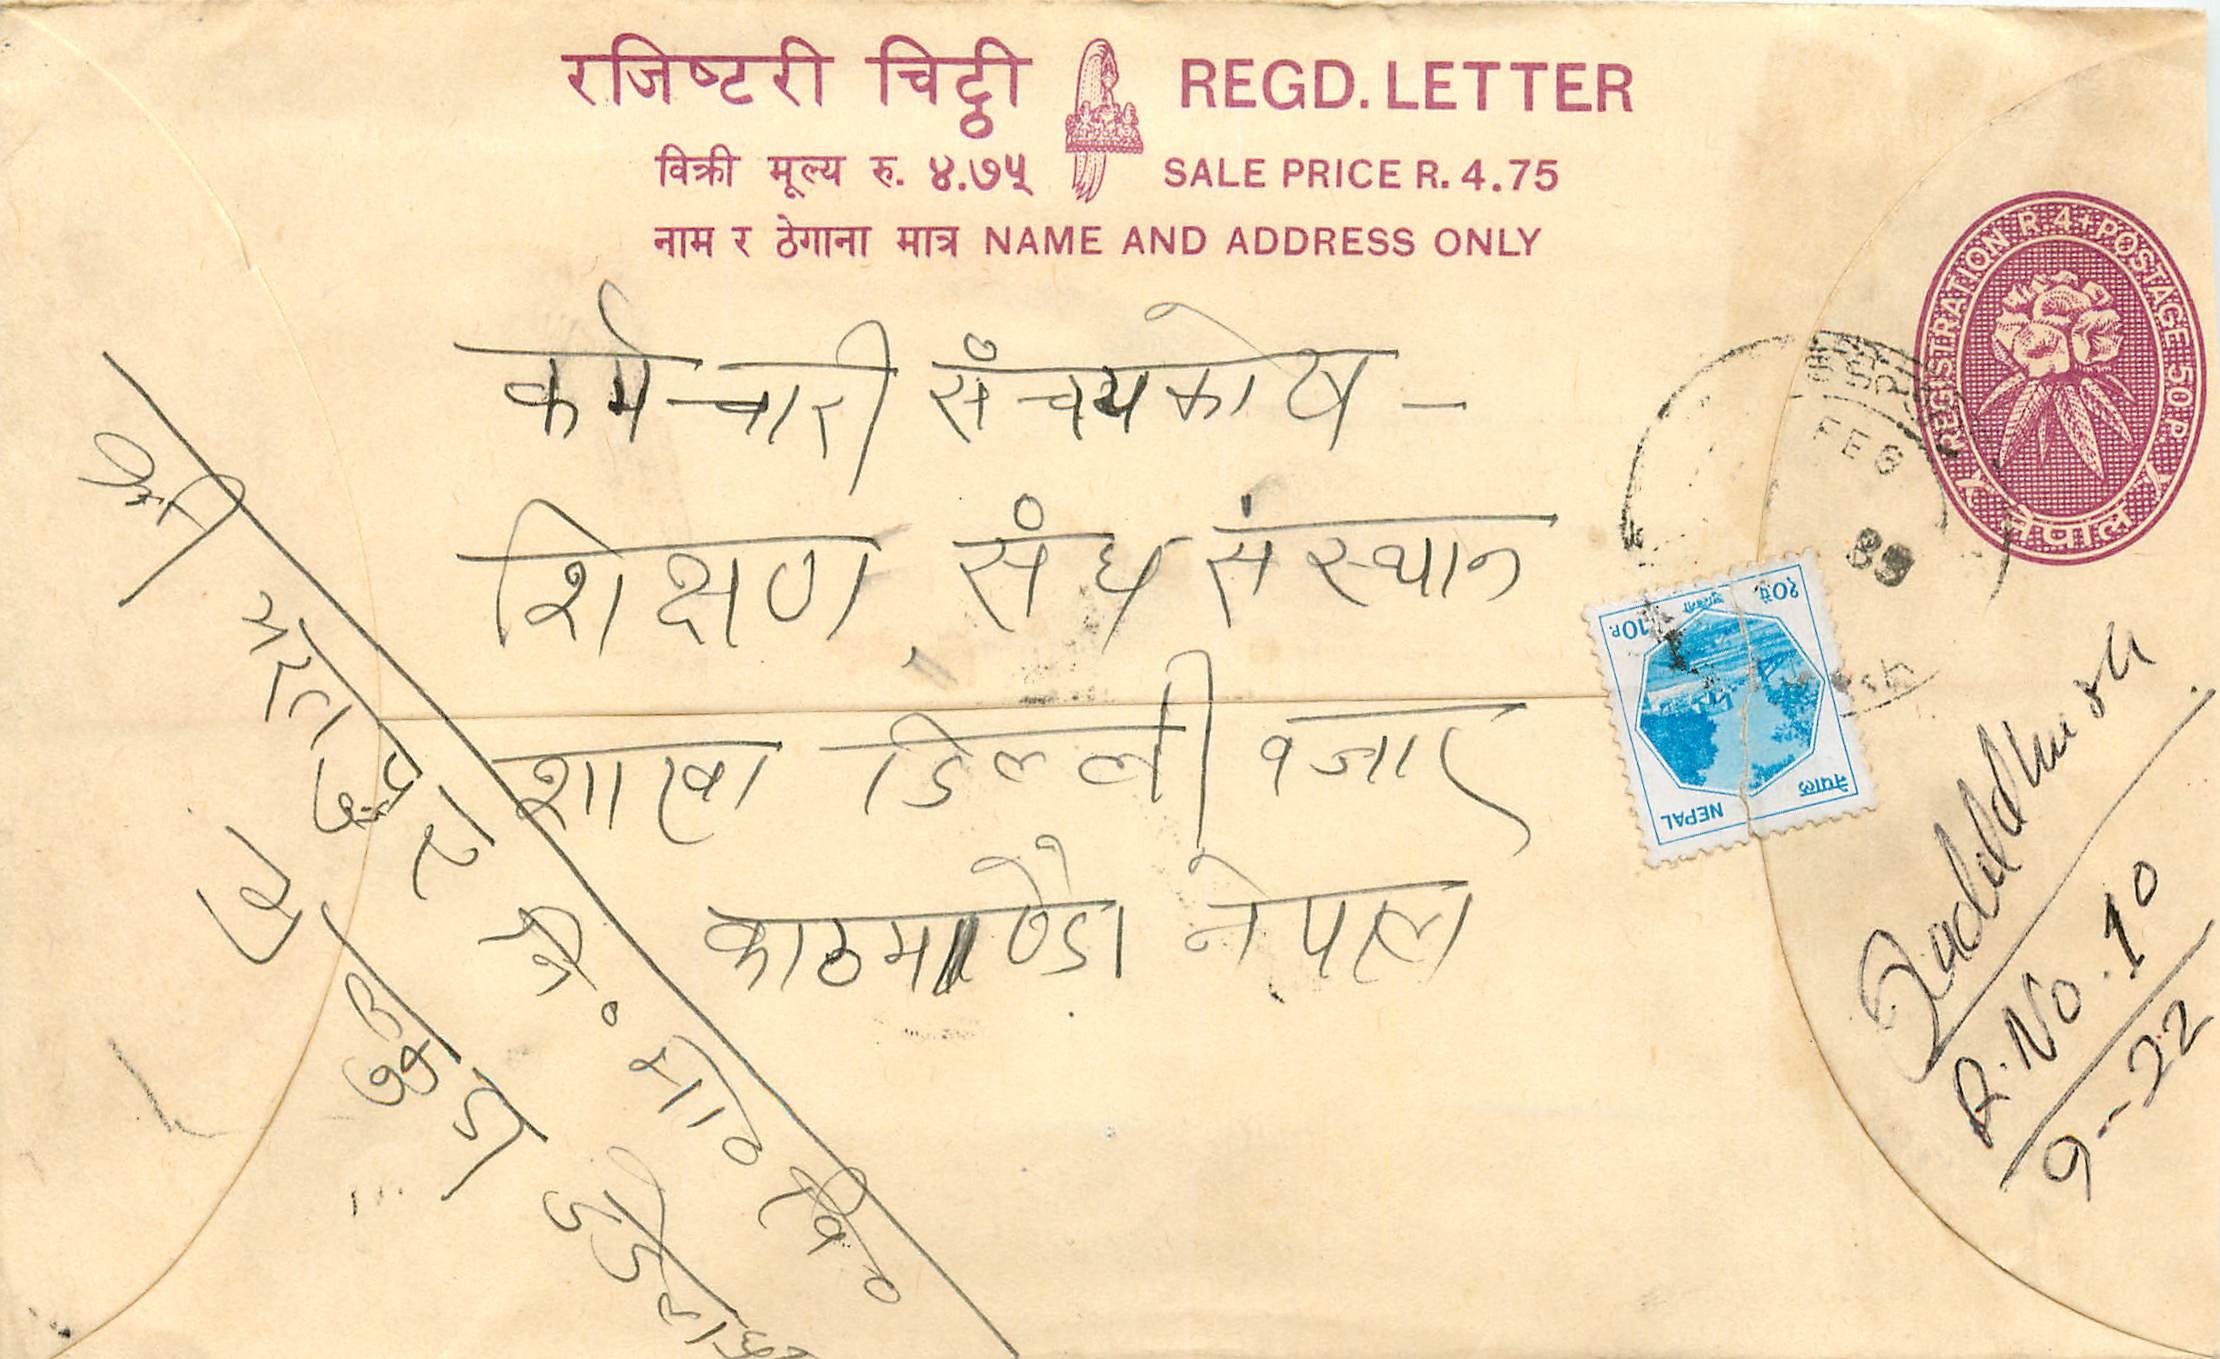 रजिष्टरी चिट्ठी REGD. LETTER
विक्री मूल्य रु. ४.७५ SALE PRICE R. 4.75
नाम र ठेगाना मात्र NAME AND ADDRESS ONLY
REGISTRATION R.4+POSTAGE 50P.
नेपाल
कर्मचारी संचयकोष –
शिक्षण संघ संस्थान
शाखा डिल्ली बजार
काठमाण्डौ नेपाल
FEB
89
१० पै.
10P.
नेपाल
NEPAL
Dadeldhura
R.No. 10
9-22
श्री अस्त
नि. मा. वि.
डडेल